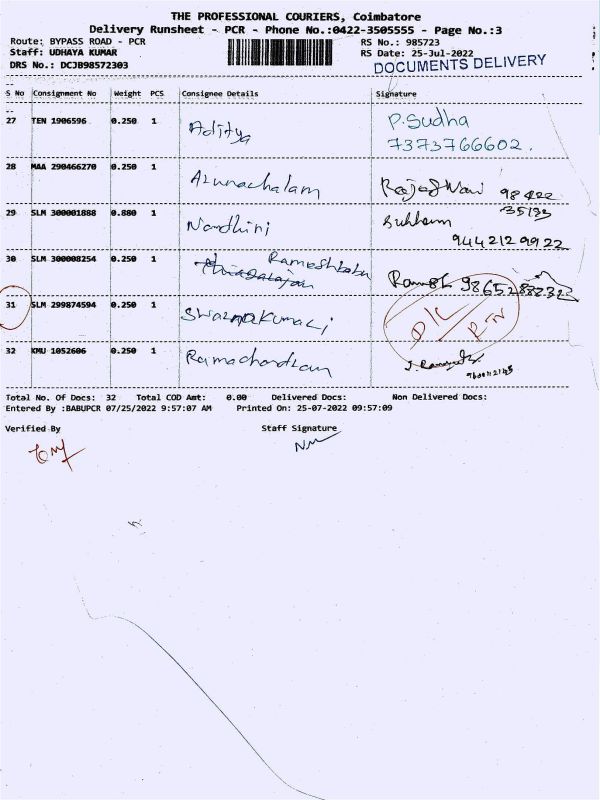 THE PROFESSIONAL COURIERS, Coimbatore
Delivery Runsheet - PCR - Phone No.:0422-3505555 - Page No.:3
Route: BYPASS ROAD - PCR RS No.: 985723
Staff: UDHAYA KUMAR RS Date: 25-Jul-2022
DRS No.: DCJB98572303 DOCUMENTS DELIVERY
S No Consignment No Weight PCS Consignee Details Signature
27 TEN 1906596 0.250 1 Aditya P.Sudha
7373766602.
28 MAA 290466270 0.250 1 Arunachalam 98422
35133
29 SLM 300001888 0.880 1 Nandhini
9442129922
30 SLM 300008254 0.250 1 Rameshbabu Ramesh
31 SLM 299874594 0.250 1 Swarnakumari D/L
RTN
32 KMU 1052606 0.250 1 Ramachandran
Total No. Of Docs: 32 Total COD Amt: 0.00 Delivered Docs: Non Delivered Docs:
Entered By :BABUPCR 07/25/2022 9:57:07 AM Printed On: 25-07-2022 09:57:09
Verified By Staff Signature